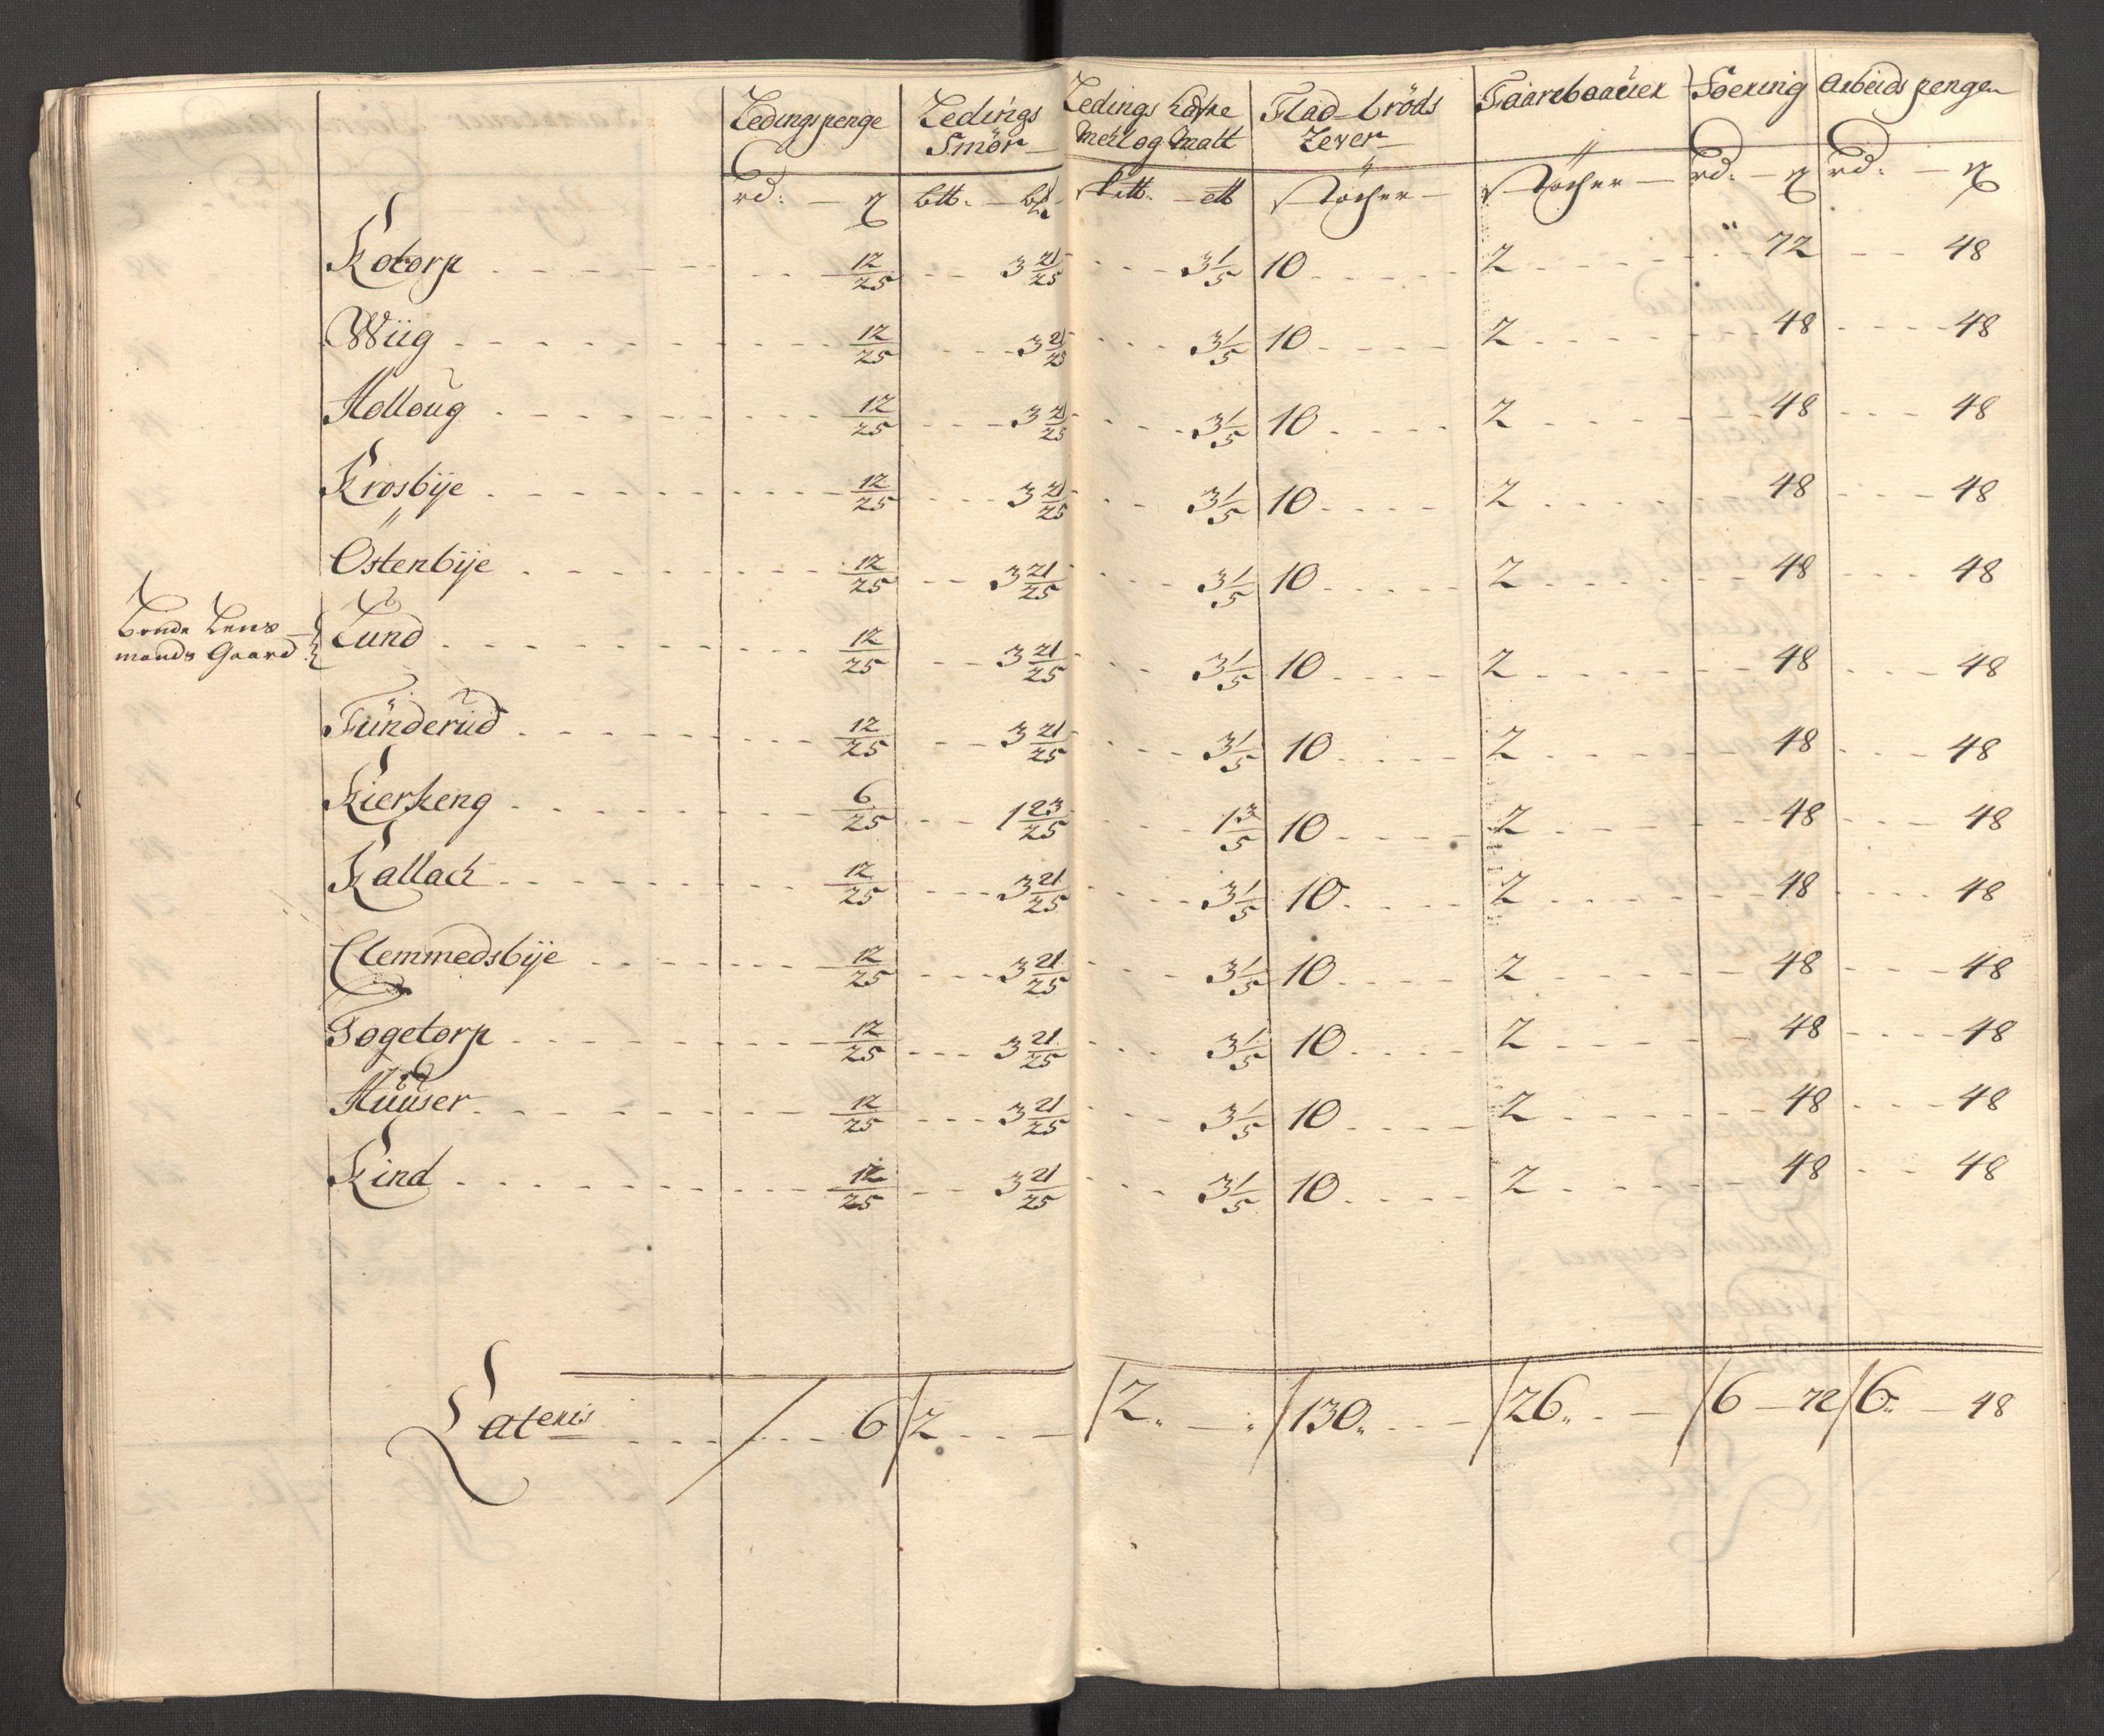 Ledingspenge Ledings Smör Ledings Hafre Mehl og Malt Flad-bröds Lever Faareboauer Foering Arbeids penge
rd: btt. Stöcher Stöcher rd. rd:
Kotorp 12/25 3 21/25 3 1/5 10 2 72 48
Wiig 12/25 3 21/25 3 1/5 10 2 48 48
Holloug 12/25 3 21/25 3 1/5 10 2 48 48
Krosbÿe 12/25 3 21/25 3 1/5 10 2 48 48
Östenbÿe 12/25 3 21/25 3 1/5 10 2 48 48
Bonde Lens-
mands Gaard Lund 12/25 3 21/25 3 1/5 10 2 48 48
Fünderüd 12/25 3 21/25 3 1/5 10 2 48 48
Kierkeng 6/25 1 23/25 1 3/5 10 2 48 48
Kallach 12/25 3 21/25 3 1/5 10 2 48 48
Clemmedsbÿe 12/25 3 21/25 3 1/5 10 2 48 48
Togetorp 12/25 3 21/25 3 1/5 10 2 48 48
Huuser 12/25 3 21/25 3 1/5 10 2 48 48
Kind 12/25 3 21/25 3 1/5 10 2 48 48
Lateris 6 2 2 130 26 6 72 6 48